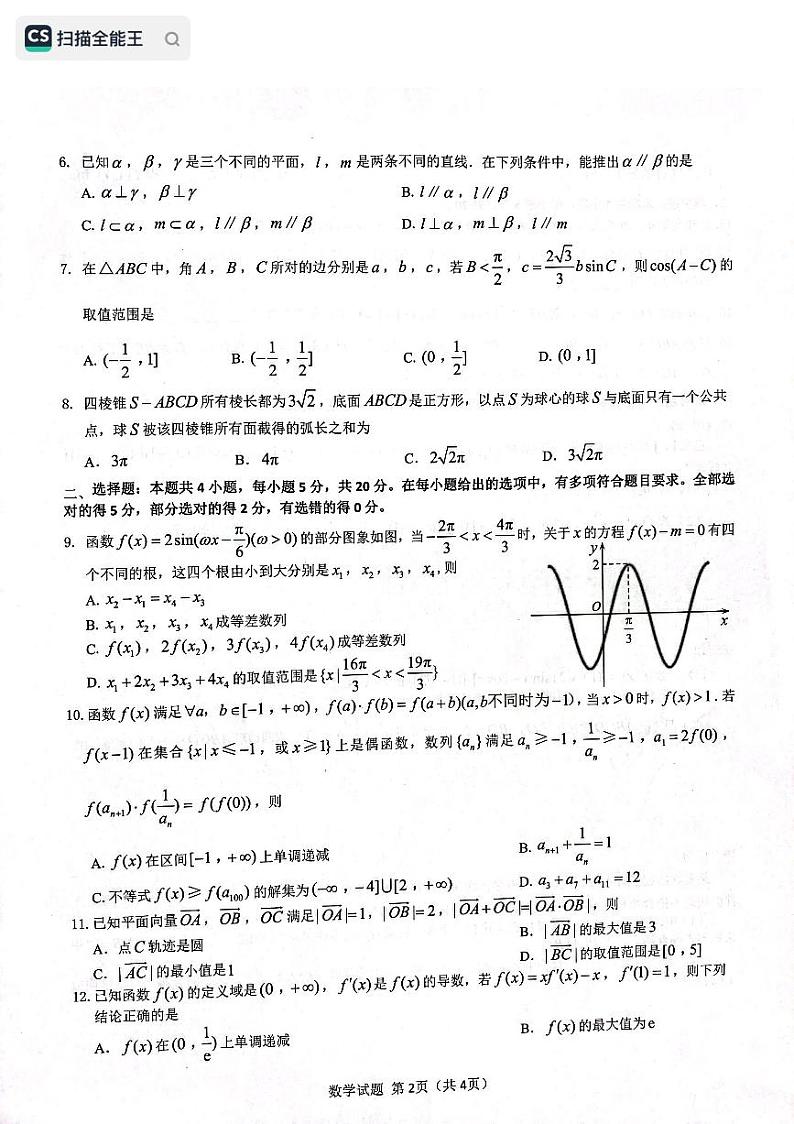 CS 扫描全能王
6. 已知α，β，γ是三个不同的平面，l，m是两条不同的直线．在下列条件中，能推出α∥β的是
A. α⊥γ，β⊥γ B. l∥α，l∥β
C. l⊂α，m⊂α，l∥β，m∥β D. l⊥α，m⊥β，l∥m
7. 在△ABC中，角A，B，C所对的边分别是a，b，c，若B<π/2，c=2√3/3 b sin C，则cos(A−C)的
取值范围是
A. (−1/2，1] B. (−1/2，1/2] C. (0，1/2] D. (0，1]
8. 四棱锥S−ABCD所有棱长都为3√2，底面ABCD是正方形，以点S为球心的球S与底面只有一个公共
点，球S被该四棱锥所有面截得的弧长之和为
A．3π B．4π C．2√2π D．3√2π
二、选择题：本题共4小题，每小题5分，共20分。在每小题给出的选项中，有多项符合题目要求。全部选
对的得5分，部分选对的得2分，有选错的得0分。
9. 函数f(x)=2sin(ωx−π/6)(ω>0)的部分图象如图，当−2π/3<x<4π/3时，关于x的方程f(x)−m=0有四
个不同的根，这四个根由小到大分别是x₁，x₂，x₃，x₄,则
A. x₂−x₁=x₄−x₃
B. x₁，x₂，x₃，x₄成等差数列
C. f(x₁)，2f(x₂)，3f(x₃)，4f(x₄)成等差数列
D. x₁+2x₂+3x₃+4x₄的取值范围是{x|16π/3<x<19π/3}
y
2
O
π/3
x
10. 函数f(x)满足∀a，b∈[−1，+∞)，f(a)·f(b)=f(a+b)(a,b不同时为−1)，当x>0时，f(x)>1．若
f(x−1)在集合{x|x≤−1，或x≥1}上是偶函数，数列{aₙ}满足aₙ≥−1，1/aₙ≥−1，a₁=2f(0)，
f(aₙ₊₁)·f(1/aₙ)=f(f(0))，则
A. f(x)在区间[−1，+∞)上单调递减 B. aₙ₊₁+1/aₙ=1
C. 不等式f(x)≥f(a₁₀₀)的解集为(−∞，−4]∪[2，+∞) D. a₃+a₇+a₁₁=12
11. 已知平面向量OA，OB，OC满足|OA|=1，|OB|=2，|OA+OC|=|OA·OB|，则
A．点C轨迹是圆 B．|AB|的最大值是3
C．|AC|的最小值是1 D．|BC|的取值范围是[0，5]
12. 已知函数f(x)的定义域是(0，+∞)，f′(x)是f(x)的导数，若f(x)=xf′(x)−x，f′(1)=1，则下列
结论正确的是
A．f(x)在(0，1/e)上单调递减 B．f(x)的最大值为e
数学试题 第2页（共4页）